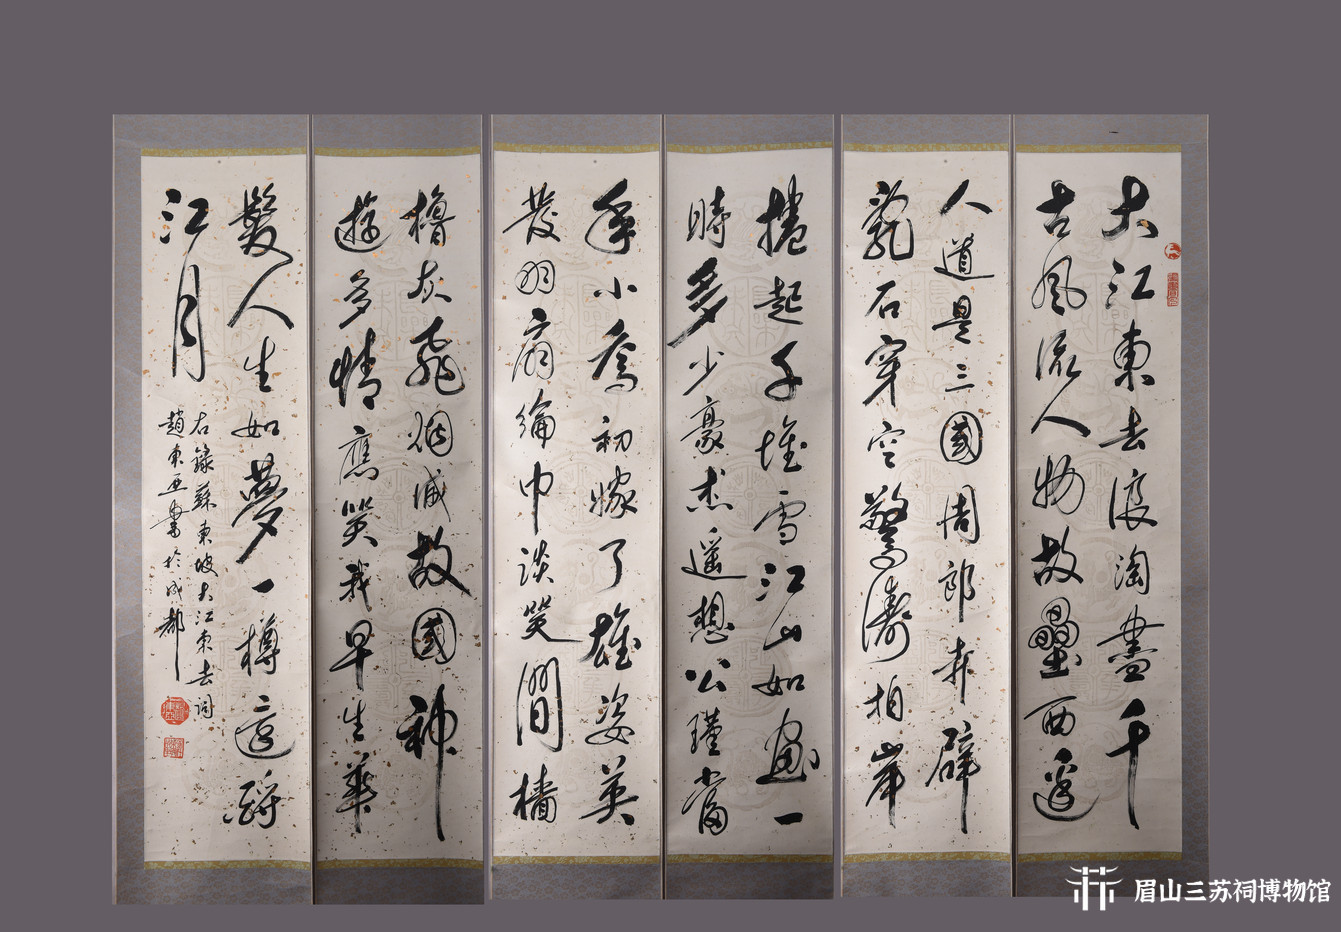 大江東去浪淘盡千
古風流人物故壘西邊
人道是三國周郎赤壁
亂石穿空驚濤拍岸
捲起千堆雪江山如畫一
時多少豪杰遙想公瑾當
年小喬初嫁了雄姿英
發羽扇綸巾談笑間檣
櫓灰飛烟滅故國神
遊多情應笑我早生華
髮人生如夢一樽還酹
江月
右錄蘇東坡大江東去詞
趙東亞書於成都
眉山三苏祠博物馆